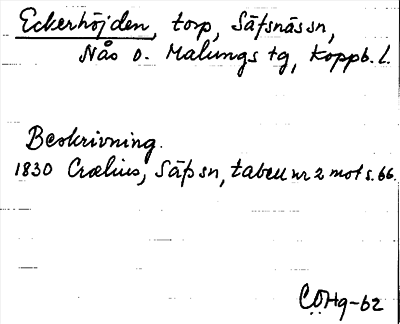 Eckerhöjden, torp, Säfsnäs sn,
Nås o. Malungs tg, Koppb. l.
Beskrivning.
1830 Crælius, Säfs sn, tabell nr 2 mot s. 66.
CÖHg-62